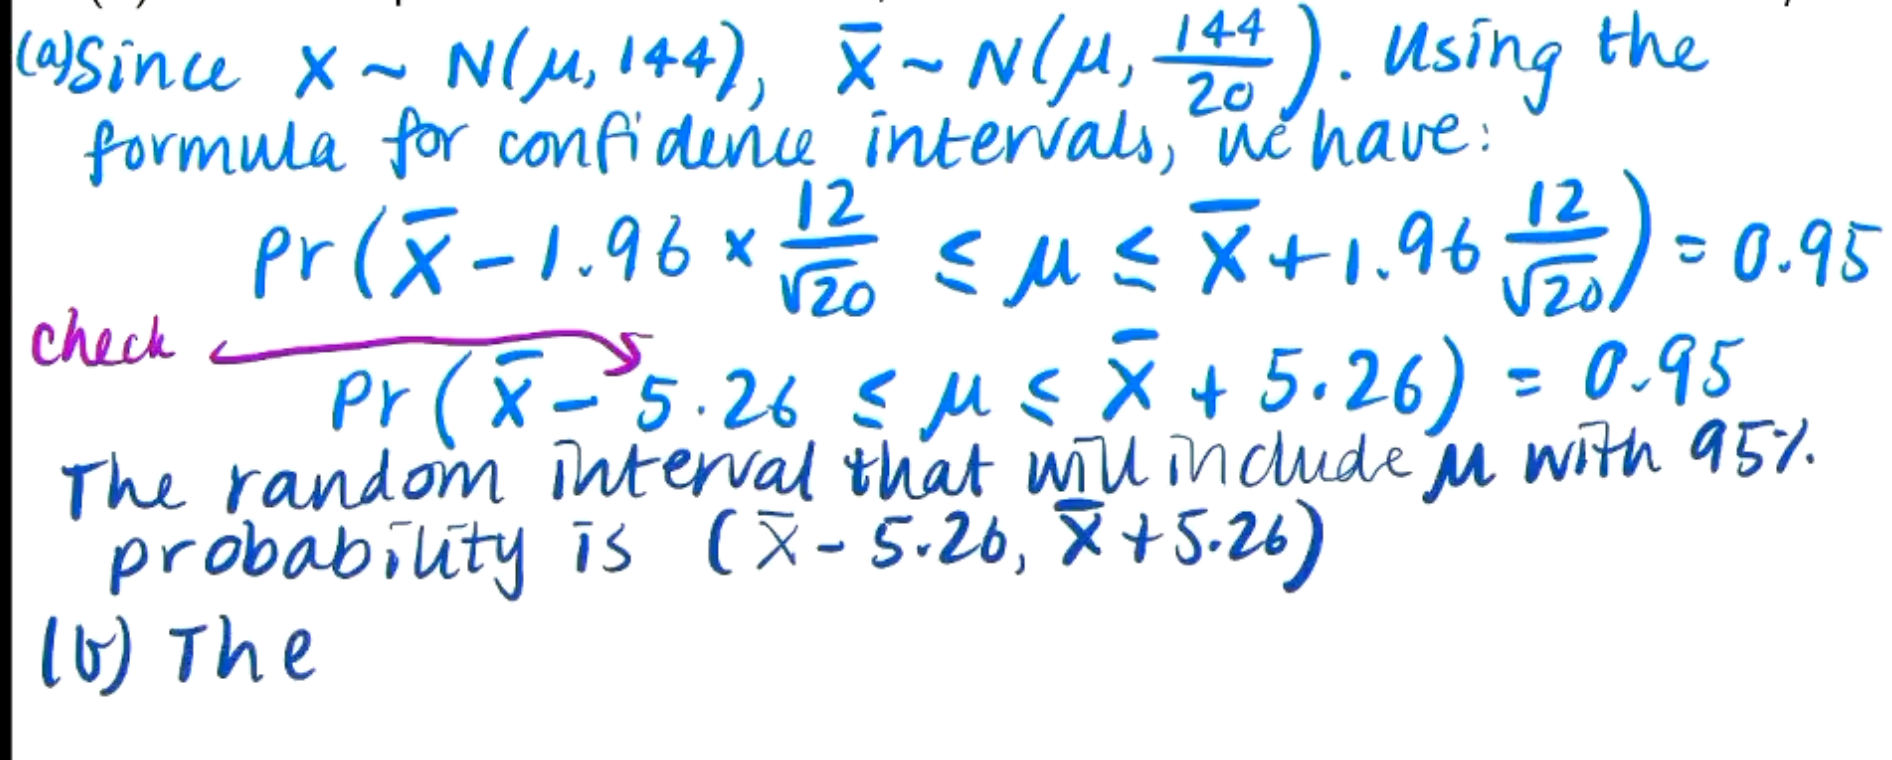 (a) Since X ~ N(μ, 144), X̄ ~ N(μ, 144/20). Using the
formula for confidence intervals, we have:
Pr(X̄ - 1.96 × 12/√20 ≤ μ ≤ X̄ + 1.96 12/√20) = 0.95
check
Pr(X̄ - 5.26 ≤ μ ≤ X̄ + 5.26) = 0.95
The random interval that will include μ with 95%
probability is (X̄ - 5.26, X̄ + 5.26)
(b) The